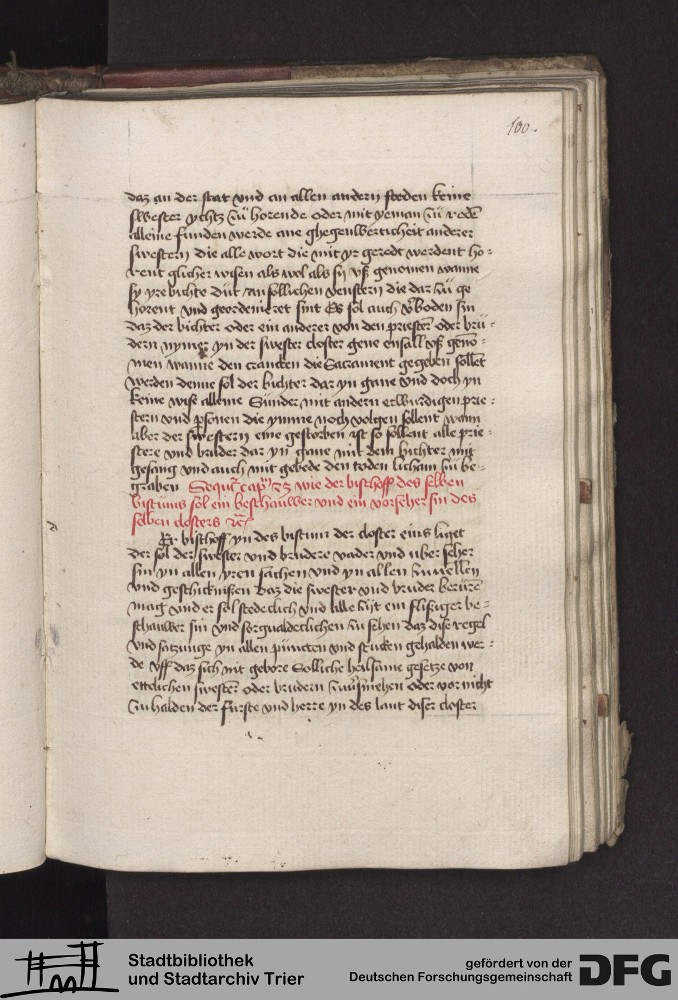 100.
daz an der stat vnd an allen andern steden keine
swester ychtz zü horende oder mit yeman zü redē
alleine funden werde ane ghegenwerticheit anderer
swestern die alle wort die mit yr geredt werdent ho=
rent glicher wisen als wol als sy vß genomen wanne
sy yre bichte düt an sollichen venstern die dar zü ge
horent vnd geordenieret sint Es sol auch v̄boden sin
daz der bichter oder ein anderer von den priestē oder brü=
dern nymer yn der swester closter gene enfall vß geno=
men wanne den crancken die Sacrament gegeben sollēt
werden denne sol der bichter dar yn gane vnd doch yn
keine wise alleine Sünder mit andern erbwrdigen prie=
stern vnd psonen die ymme noch volgen sollent wann
aber der swestern eine gestorben ist so sollent alle prie=
stere vnd bruder dar yn gane mit dem bichter mit
gesang vnd auch mit gebede den toden licham zü be=
graben Sequitꝰ capꝰ 23 wie der bischoff des selben
bistüms sol ein beschauwer vnd ein vorseher sin des
selben closters ꝛc̄
Er bischoff yn des bistum der closter eins liget
der sol der swester vnd brudere vader vnd uber seher
sin yn allen yren sachen vnd yn allen zuuellen
vnd geschicknißen daz die swester vnd bruder berürē
mag vnd er sol stedeclich vnd alle zijt ein flißiger be=
schauwer sin vnd sorgualdeclichen zu sehen daz dise regel
vnd satzunge yn allen püncten vnd stucken gehalden wer=
de vff daz sich nit gebore Solliche heilsame gesetze von
ettelichen swestē oder brudern zuūsmehen oder vor nicht
zu halden der furste vnd herre yn des lant diser closter
Stadtbibliothek
und Stadtarchiv Trier
gefördert von der
Deutschen Forschungsgemeinschaft
DFG